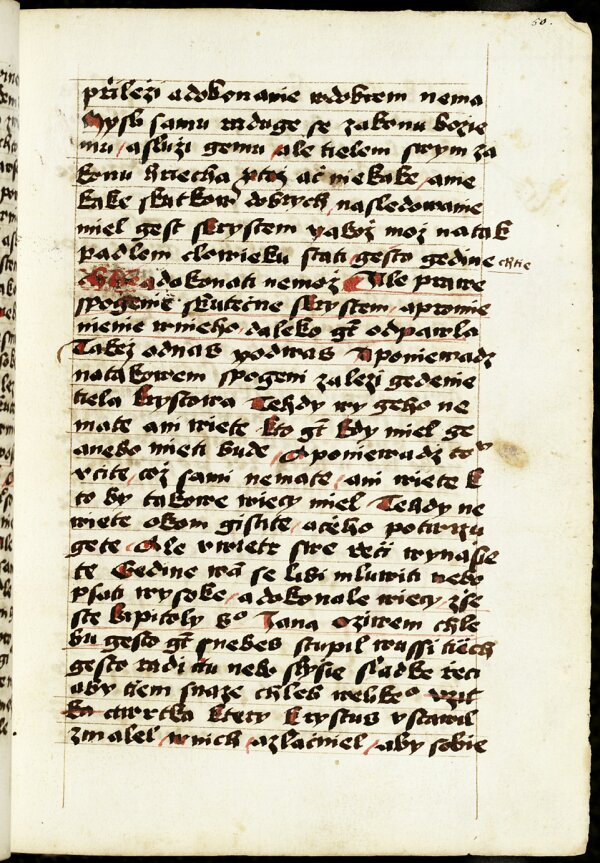 50.
přileži a dokonanie w dobrem nema
Mysli samu raduge se zakonu bozie
mu / a služi gemu / ale tielem swym za
konu hriecha ptoz ač niekake / anie
kake skutkow dobrych nasledowanie
miel gest s krystem yakož moz na tak
padlem clowieku stati gesto gedine chtie
dokonati nemož Ale prawe
spogenie skutečne s krystem / a promie
nienie w nieho / daleko gt od pawla
Takež od nas y od was A poniewadz
na takowem spogeni zaleži gedenie
tiela krystowa Tehdy wy geho ne
mate ani wiete kto gt kdy miel ge
anebo mieti bude / A poniewadz toho
včite / což sami nemate / ani wiete k
to by takowe wiecy miel Tehdy ne
wiete o kom gistite / a čeho potwrzu
gete / Ale v wietr swe řeči wynasie
te Gedine wam se libi mluwiti nebo
psati wysoke / a dokonale wiecy / z sse
ste kapitoly so Jana o ziwem chle
bu gesto gt s nebes stupil w ussi tiech
gesto radi čtu nebo slysie sladke řeči
aby tiem snaze chleb welikeo
ka čtwrtka ktery krystus vstawil
zmalel w nich / a zlacniel / aby sobie